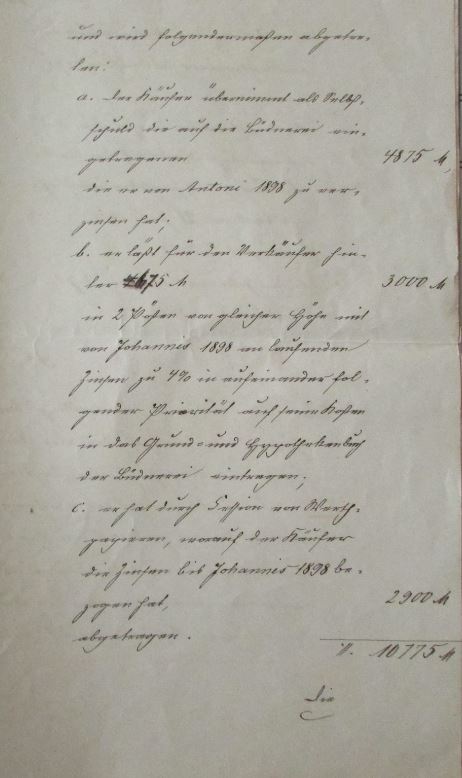 und wird folgendermaßen abgetra-
ten:
a. der Käufer übernimmt als Selbst-
schuld die auf die Büdnerei ein-
getragenen 4875 M,
die er von Antoni 1898 zu ver-
zinsen hat;
b. er läßt für den Verkäufer hin-
ter M 3000 M
in 2 Pösten von gleicher Höhe mit
von Johannis 1898 an laufenden
Zinsen zu 4% in aufeinander fol-
gender Priorität auf seine Kosten
in das Grund- und Hypothekenbuch
der Büdnerei eintragen;
c. er hat durch Cession von Werth-
papieren, worauf der Käufer
die Zinsen bis Johannis 1898 be-
zogen hat, 2900 M
abgetragen.
10775 M
Die